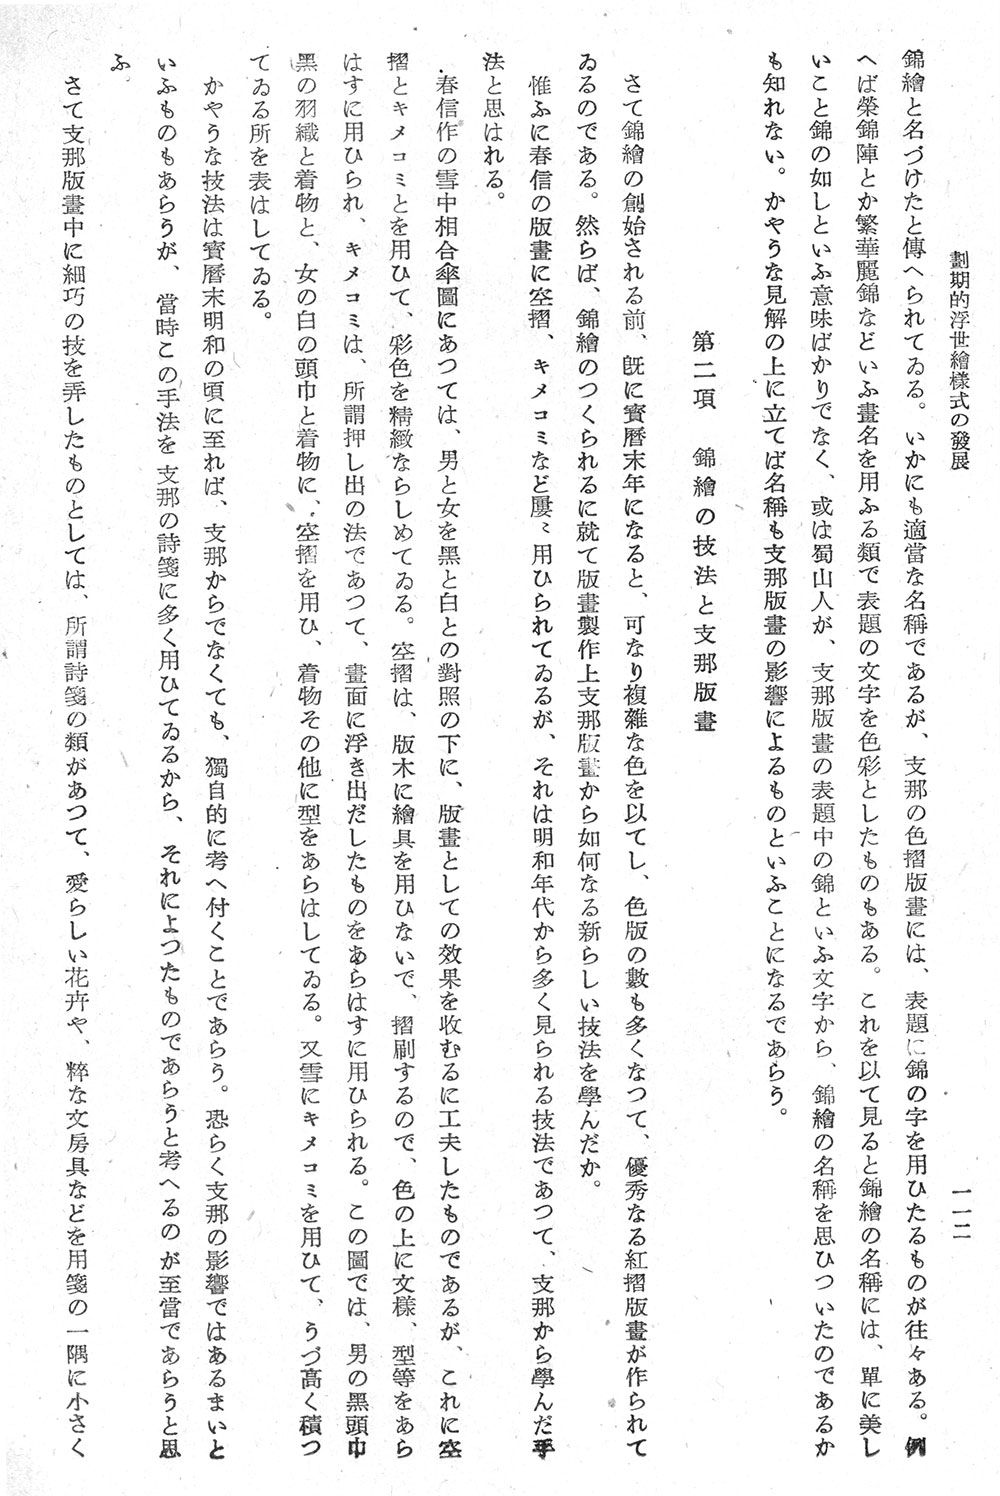 劃期的浮世繪樣式の發展
一一二
錦繪と名づけたと傳へられてゐる。いかにも適當な名稱であるが、支那の色摺版畫には、表題に錦の字を用ひたるものが往々ある。例
へば榮錦陣とか繁華麗錦などいふ畫名を用ふる類で表題の文字を色彩としたものもある。これを以て見ると錦繪の名稱には、單に美し
いこと錦の如しといふ意味ばかりでなく、或は蜀山人が、支那版畫の表題中の錦といふ文字から、錦繪の名稱を思ひついたのであるか
も知れない。かやうな見解の上に立てば名稱も支那版畫の影響によるものといふことになるであらう。
第二項　錦繪の技法と支那版畫
さて錦繪の創始される前、旣に寳曆末年になると、可なり複雜な色を以てし、色版の數も多くなつて、優秀なる紅摺版畫が作られて
ゐるのである。然らば、錦繪のつくられるに就て版畫製作上支那版畫から如何なる新らしい技法を學んだか。
惟ふに春信の版畫に空摺、キメコミなど屢〻用ひられてゐるが、それは明和年代から多く見られる技法であつて、支那から學んだ手
法と思はれる。
春信作の雪中相合傘圖にあつては、男と女を黑と白との對照の下に、版畫としての效果を收むるに工夫したものであるが、これに空
摺とキメコミとを用ひて、彩色を精緻ならしめてゐる。空摺は、版木に繪具を用ひないで、摺刷するので、色の上に文樣、型等をあら
はすに用ひられ、キメコミは、所謂押し出の法であつて、畫面に浮き出だしたものをあらはすに用ひられる。この圖では、男の黑頭巾
黑の羽織と着物と、女の白の頭巾と着物に、空摺を用ひ、着物その他に型をあらはしてゐる。又雪にキメコミを用ひて、うづ高く積つ
てゐる所を表はしてゐる。
かやうな技法は寳曆末明和の頃に至れば、支那からでなくても、獨自的に考へ付くことであらう。恐らく支那の影響ではあるまいと
いふものもあらうが、當時この手法を支那の詩箋に多く用ひてゐるから、それによつたものであらうと考へるのが至當であらうと思
ふ
さて支那版畫中に細巧の技を弄したものとしては、所謂詩箋の類があつて、愛らしい花卉や、粹な文房具などを用箋の一隅に小さく